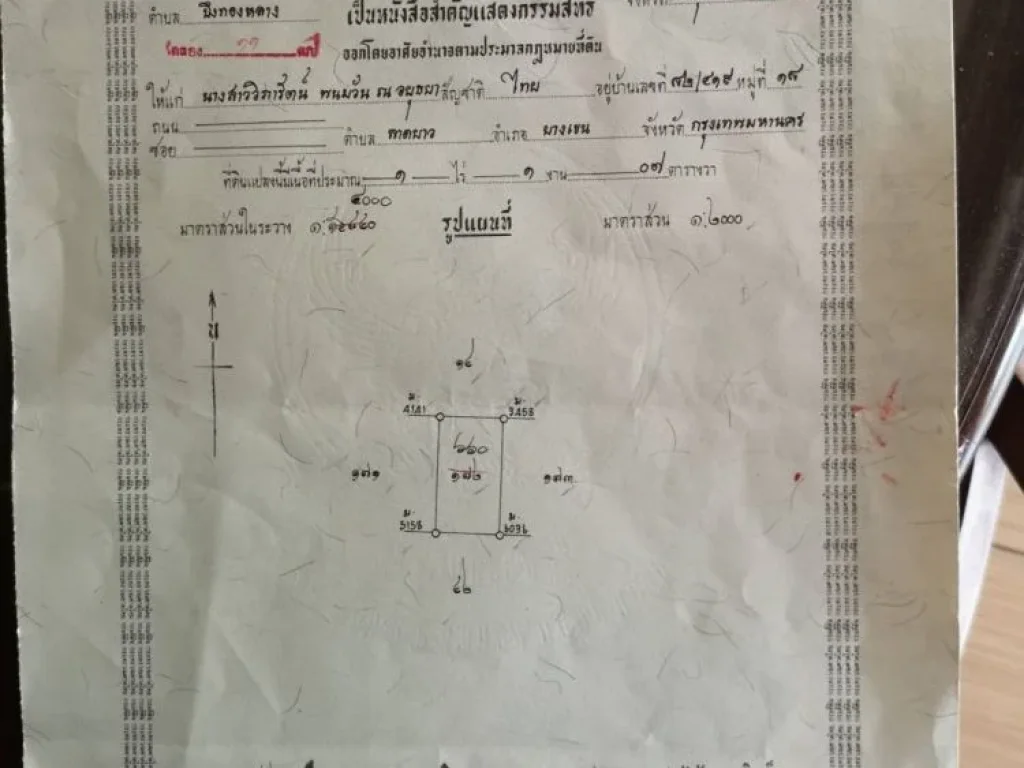 ตำบล บึงทองหลาง
เป็นหนังสือสำคัญแสดงกรรมสิทธิ
ออกโดยอาศัยอำนาจตามประมวลกฎหมายที่ดิน
ให้แก่ นางสาววิภารัตน์ พนมวัน ณ อยุธยา สัญชาติ ไทย อยู่บ้านเลขที่ ๗๒/๔๑๙ หมู่ที่ ๑๙
ถนน
ซอย ตำบล ลาดยาว อำเภอ บางเขน จังหวัด กรุงเทพมหานคร
ที่ดินแปลงนี้มีเนื้อที่ประมาณ ๑ ไร่ ๑ งาน ๐๗ ตารางวา
๔๐๐๐
มาตราส่วนในระวาง ๑: รูปแผนที่ มาตราส่วน ๑:๒๐๐๐
น
๑๔
ม. ม.
4141 3458
๖๖๐
๑๗๑ ๑๗๒ ๑๗๓
ม. ม.
3158
๔๒